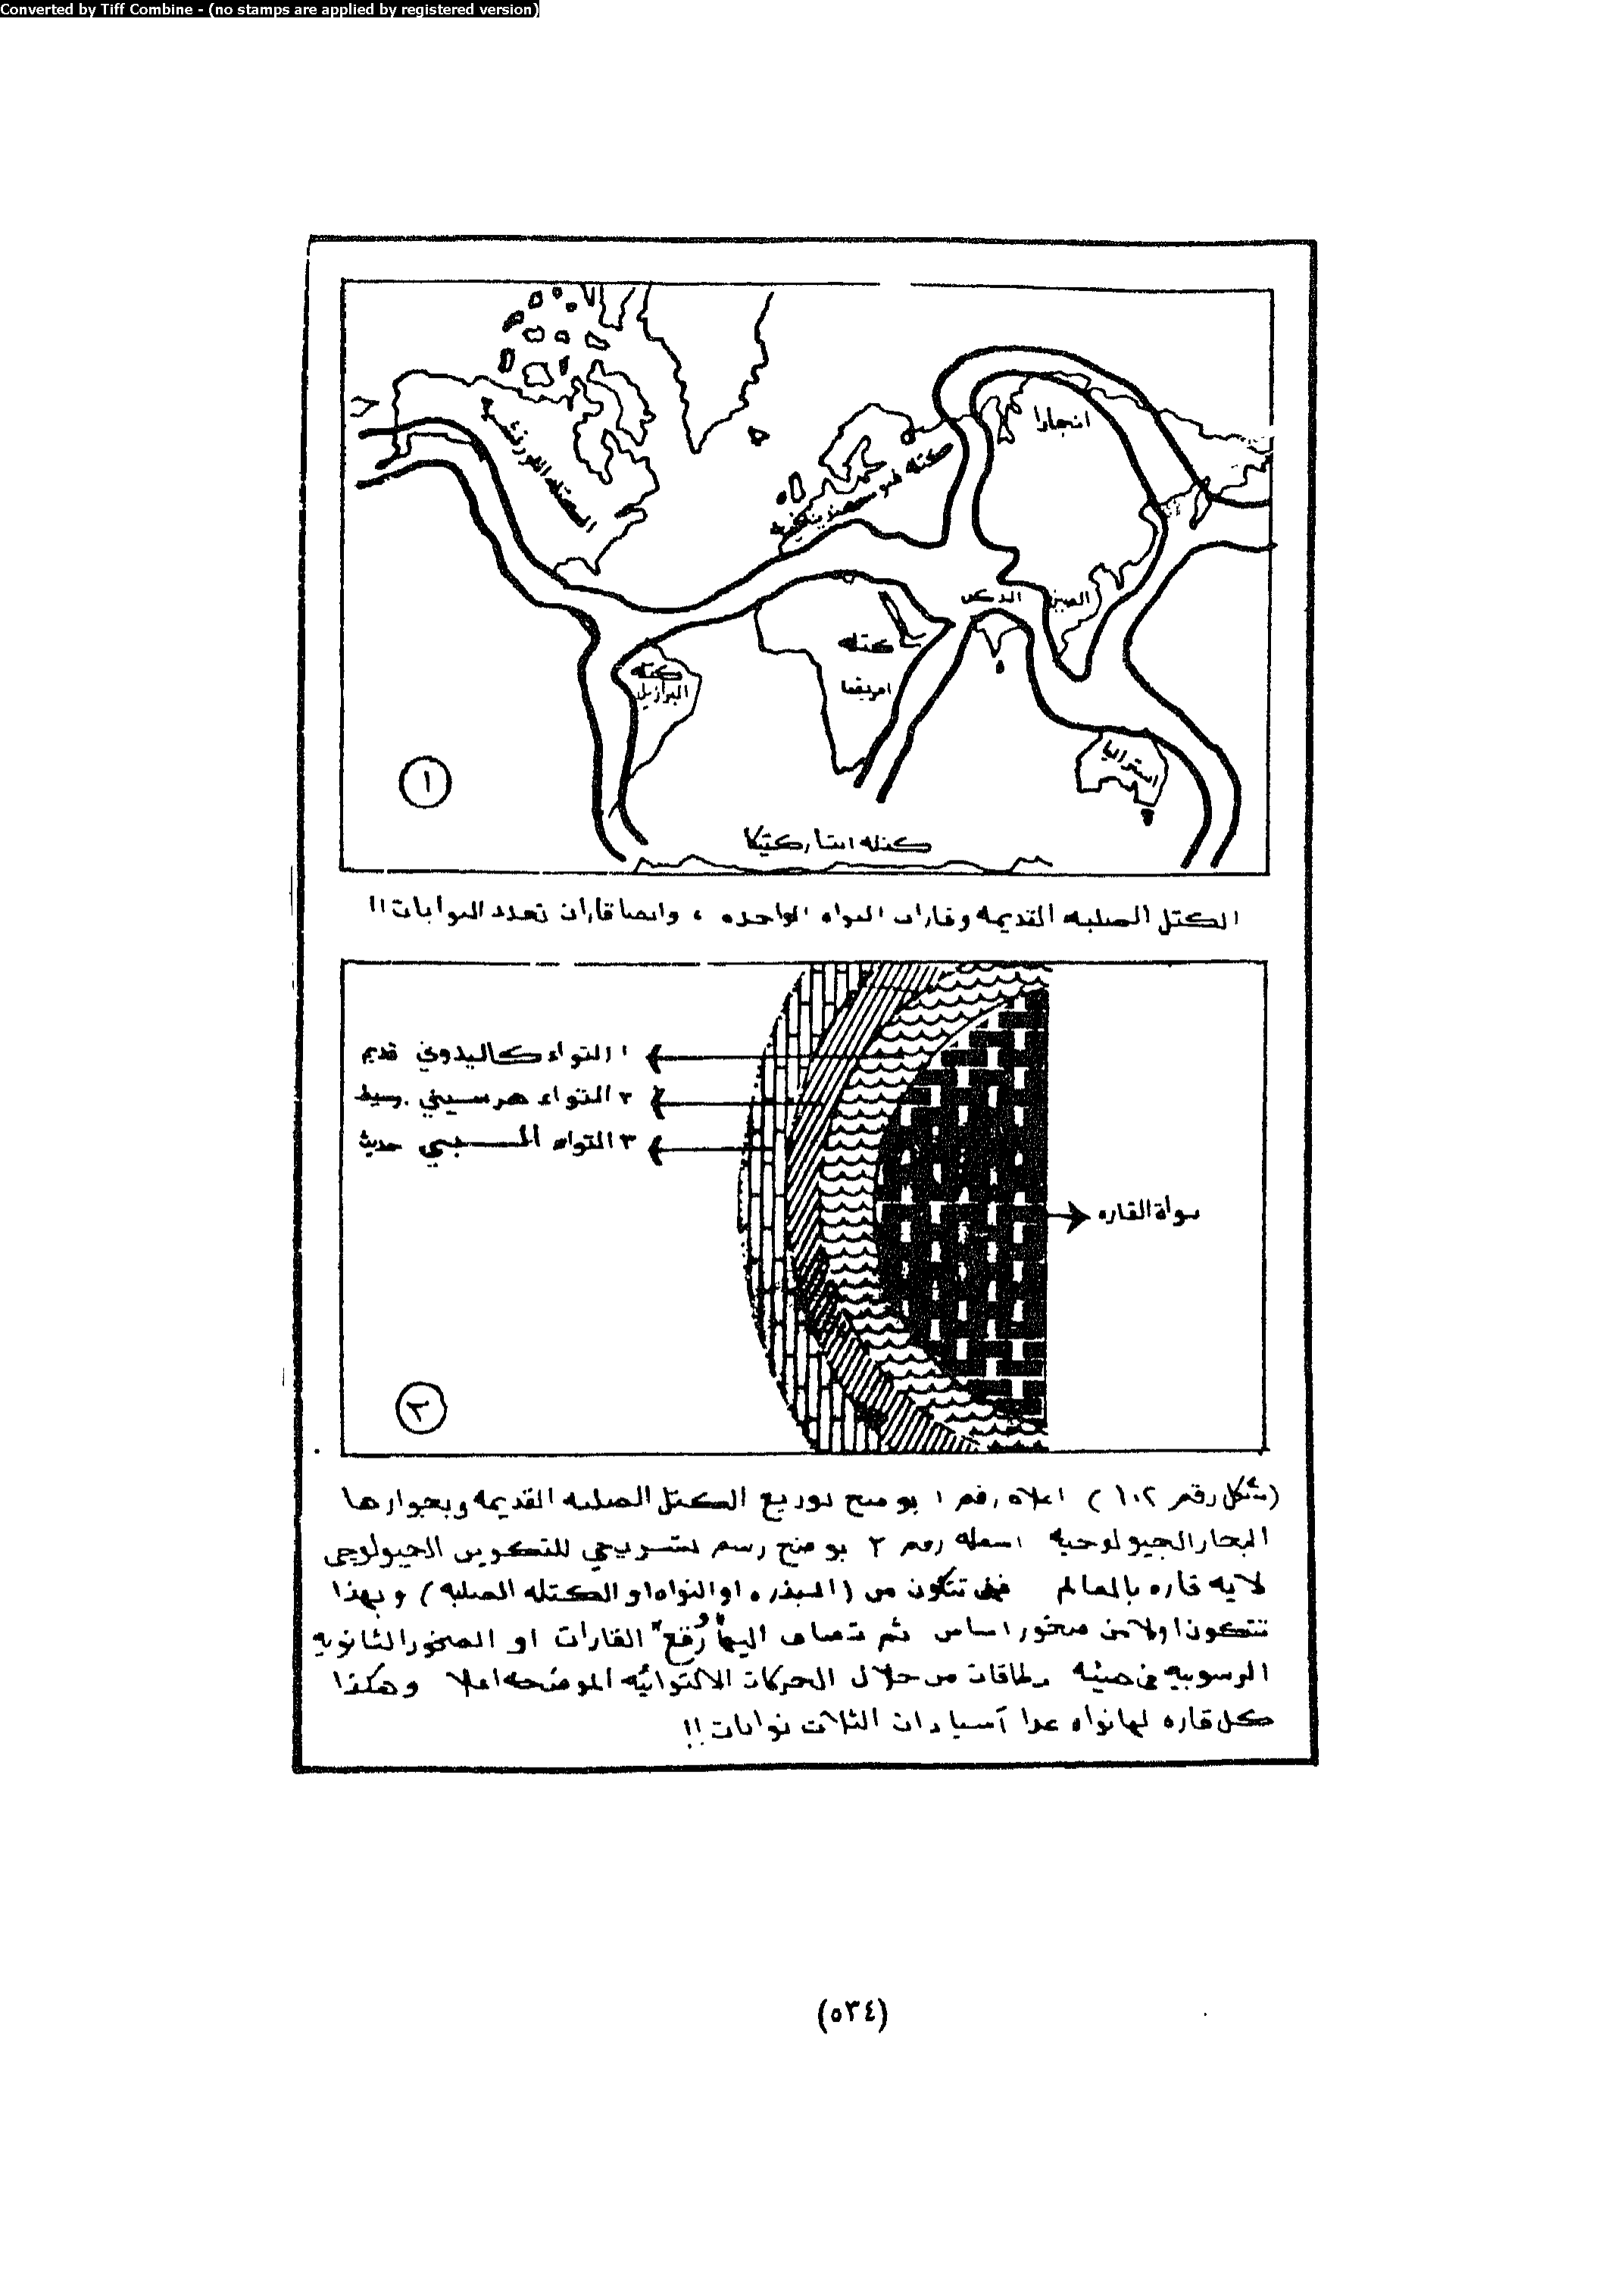 Converted by Tiff Combine - (no stamps are applied by registered version)
انجارا
الكتله اللورنشيه
كتله فنوسكندينافيه
الدكن
الصين
كتله
افريقيا
كتله
البرازيل
استراليا
١
كتله انتاركتيكا
الكتل الصلبه القديمه وقارات النواه الواحده ، وايضا قارات تعدد النوايات !!
١ التواء كاليدوني قديم
٢ التواء هرسيني وسيط
٣ التواء البـــي حديث
نواة القاره
٢
(شكل رقم ١٠٢) اعلاه رقم ١ يوضح توزيع الكتل الصلبه القديمه وبجوارها
البحار الجيولوجيه اسفله رقم ٢ يوضح رسم تشريحي للتكوين الجيولوجي
لايه قاره بالعالم فهى تتكون من (البذره او النواه او الكتله الصلبه) وبهذا
تتكون اولا من صخور اساس ثم تضاف اليها "رُقع" القارات او الصخور الثانويه
الرسوبيه فى هيئه رطاقات من خلال الحركات الالتوائيه الموضحه اعلا وهكذا
كل قاره لها نواه عدا آسيا ذات الثلاث نوايات !!
(٥٣٤)